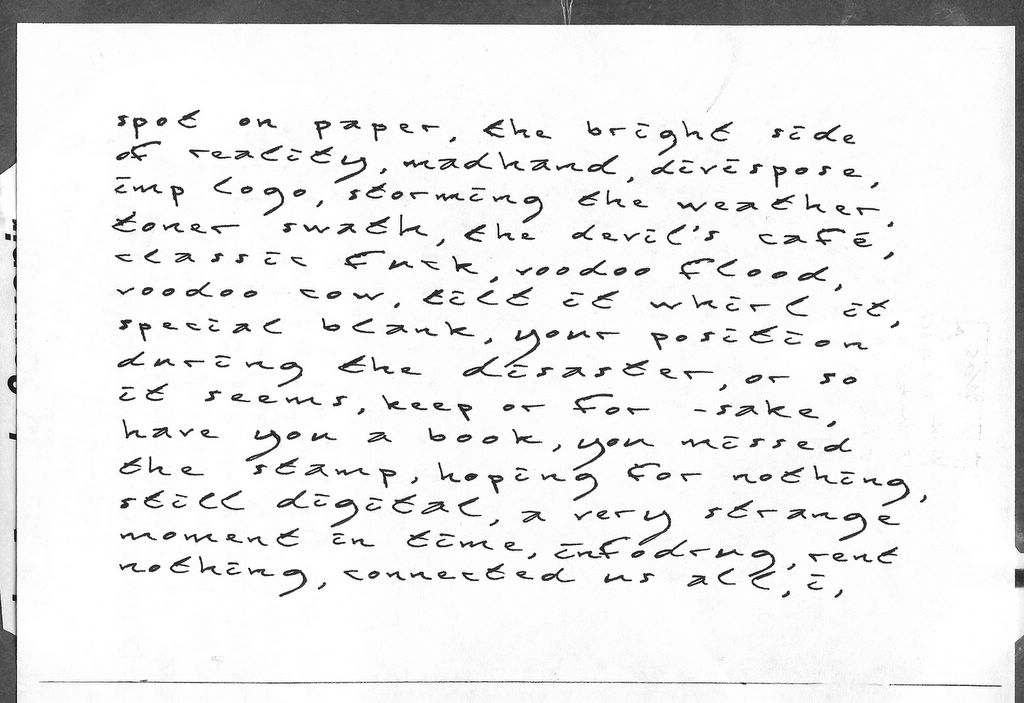 spot on paper, the bright side
of reality, madhand, divispose,
imp logo, storming the weather,
toner swath, the devil's café,
classic fuck, voodoo flood,
voodoo cow, tilt it whirl it,
special blank, your position
during the disaster, or so
it seems, keep or for -sake,
have you a book, you missed
the stamp, hoping for nothing,
still digital, a very strange
moment in time, infodrug, rent
nothing, connected us all, i,